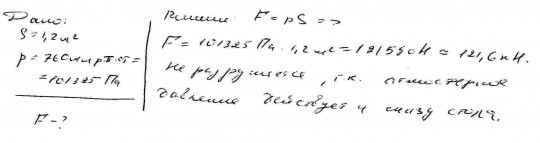 Дано:
S=1,2м²
p=760мм рт.ст=
=101325 Па
F-?
Решение F=pS =>
F=101325 Па · 1,2м²=121590Н ≈ 121,6 кН.
Не разрушится, т.к. атмосферное
давление действует и снизу стола.